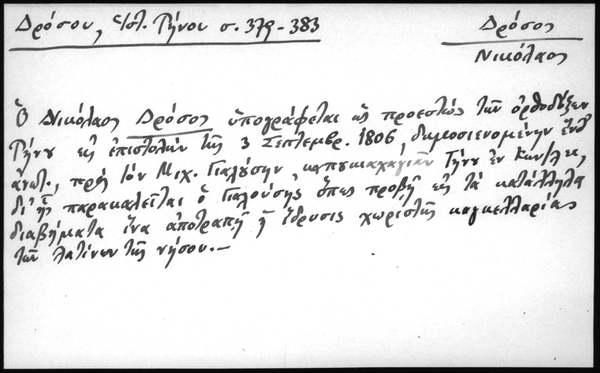 Δρόσου, Ἱστ. Τήνου σ. 379-383
Δρόσος
Νικόλαος
Ὁ Νικόλαος Δρόσος ὑπογράφεται ὡς προεστὼς τῶν ὀρθοδόξων
Τήνου εἰς ἐπιστολὴν τῆς 3 Σεπτεμβρ. 1806, δημοσιευομένην ἔνθ'
ἀνωτ., πρὸς τὸν Μιχ. Γιαλούσην, καπουκιαχαγιᾶν Τήνου ἐν Κων/λει,
δι' ἧς παρακαλεῖται ὁ Γιαλούσης ὅπως προβῇ εἰς τὰ κατάλληλα
διαβήματα ἵνα ἀποτραπῇ ἡ ἵδρυσις χωριστῆς καγκελλαρίας
τῶν Λατίνων τῆς νήσου.—